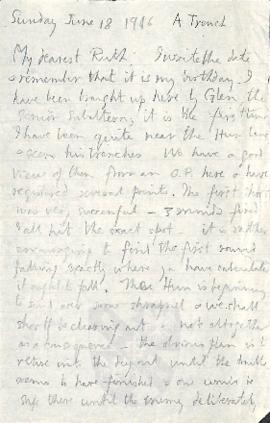 Sunday June 18 1916 A Trench
My dearest Ruth: I write the date
& remember that it is my birthday. I
have been brought up here by Glen the
senior subaltern; it is the first time
I have been quite near the Hun lines
& seen his trenches. We have a good
view of them from an O.P. here & have
registered several points. The first shoot
was very successful – 3 rounds fired
& all hit the exact spot – it is rather
encouraging to find the first round
falling exactly where you have calculated
it ought to fall. The Hun is beginning
to send over some shrapnel & we shall
shortly be clearing out – not altogether
as a consequence – the obvious plan is to
retire into the dug out until the strafe
seems to have finished & one would
stop there until the enemy deliberately